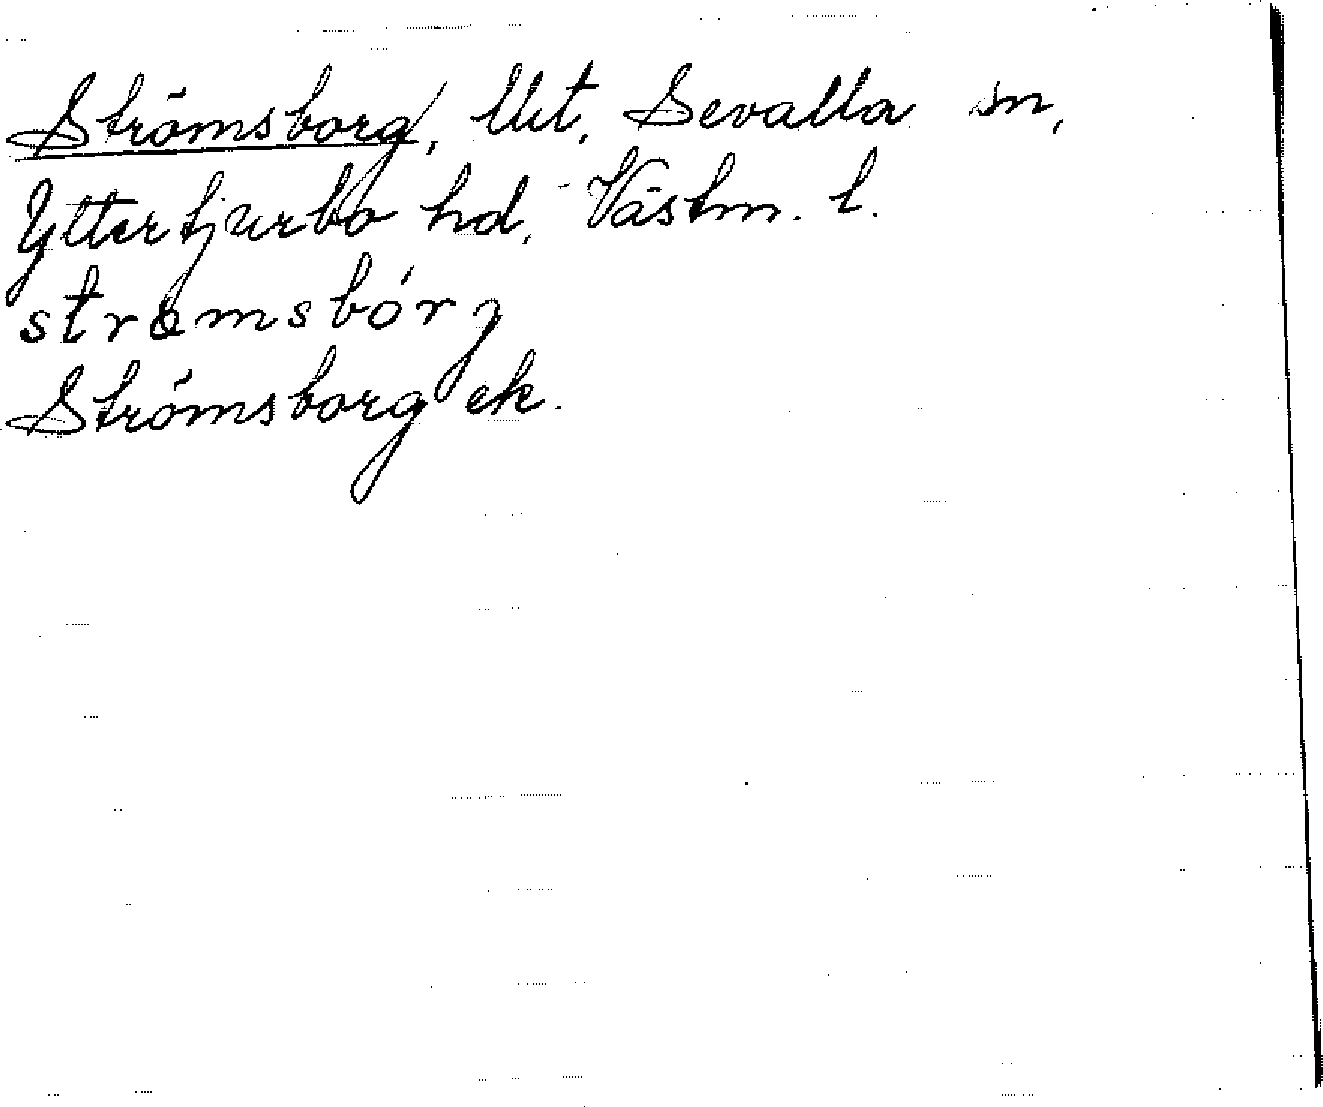 Strömsborg, lht, Sevalla sn,
Yttertjurbo hd, Västm. l.
strömsbór̨
Strömsborg ek.